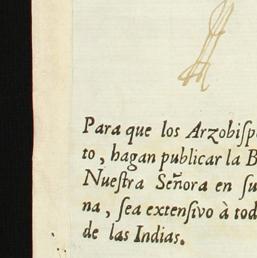 Para que los Arzobiſp
to, hagan publicar la B
Nueſtra Señora en ſu
na, ſea extenſivo à tod
de las Indias.